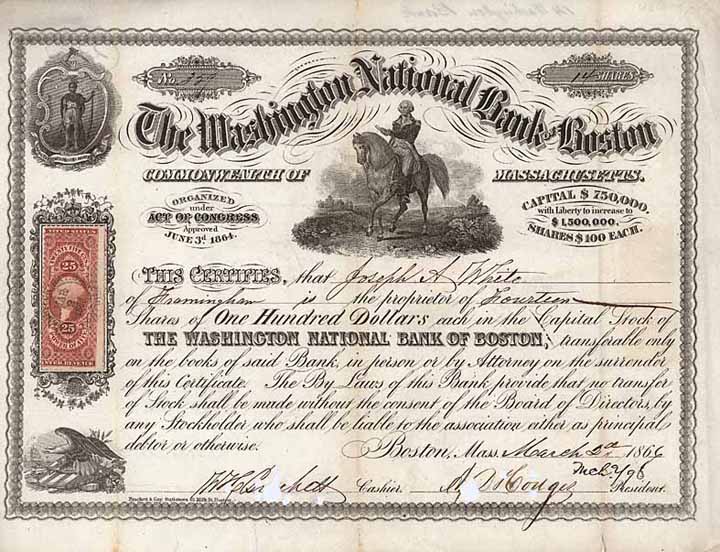 No.
14 SHARES
The Washington National Bank of Boston
COMMONWEALTH OF MASSACHUSETTS.
ORGANIZED
under
ACT OF CONGRESS
Approved
JUNE 3d 1864.
CAPITAL $ 750,000.
with Liberty to increase to
$ 1,500,000.
SHARES $ 100 EACH.
25
25
THIS CERTIFIES, that Joseph A White
of Framingham is the proprietor of Fourteen
Shares of One Hundred Dollars each in the Capital Stock of
THE WASHINGTON NATIONAL BANK OF BOSTON, transferable only
on the books of said Bank, in person or by Attorney on the surrender
of this Certificate. The By Laws of this Bank provide that no transfer
of Stock shall be made without the consent of the Board of Directors, by
any Stockholder who shall be liable to the association either as principal
debtor or otherwise.
Boston, Mass. March 2d 1866
Cashier.
President.